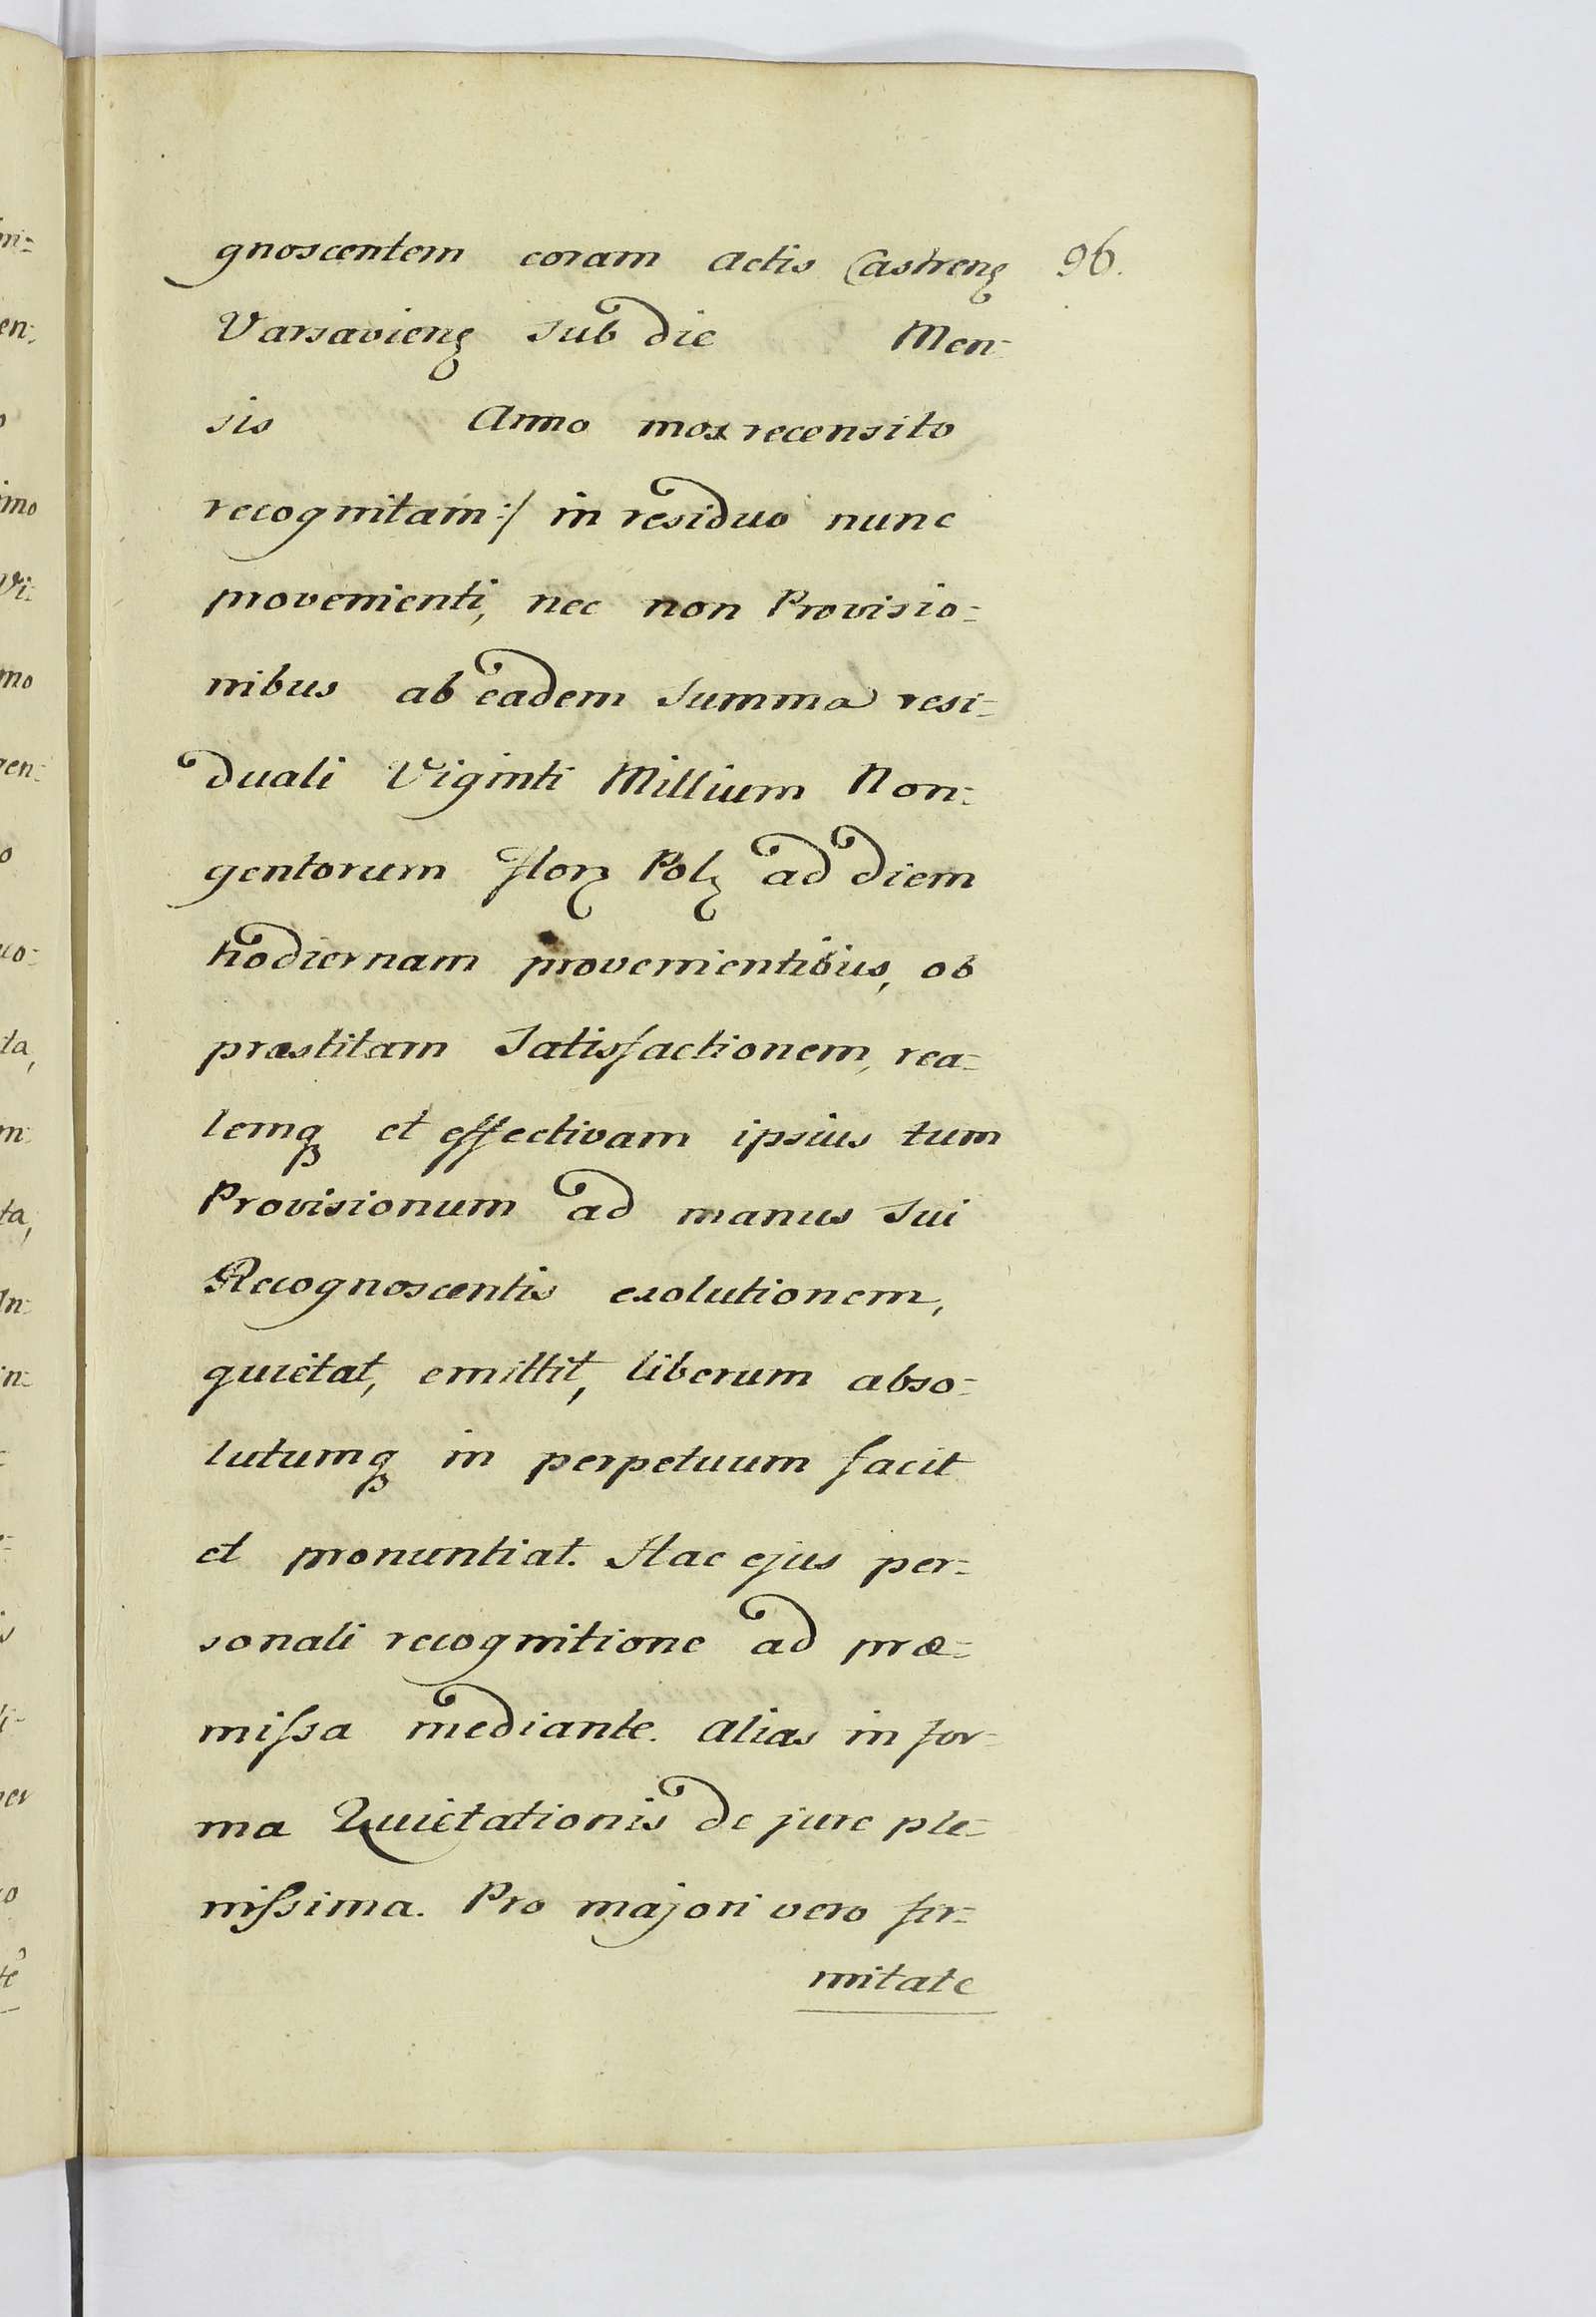 gnoscentem coram actis Castrenꝫ 96.
Varsavienꝫ sub die Men=
sis Anno mox recensito
recognitam:/ in residuo nunc
provenienti, nec non Provisio=
nibus ab eadem Summa resi=
duali Viginti Millium Non=
gentorum florꝫ Polꝫ ad diem
hodiernam provenientibus, ob
præstitam Satisfactionem, rea=
lemqꝫ et effectivam ipsius tum
Provisionum ad manus Sui
Recognoscentis exolutionem,
quietat, emittit, liberum abso=
lutumqꝫ in perpetuum facit
et pronuntiat. Hac ejus per=
sonali recognitione ad præ=
miſsa mediante. alias in for=
ma Quietationis de jure ple=
niſsima. Pro majori vero fir=
mitate